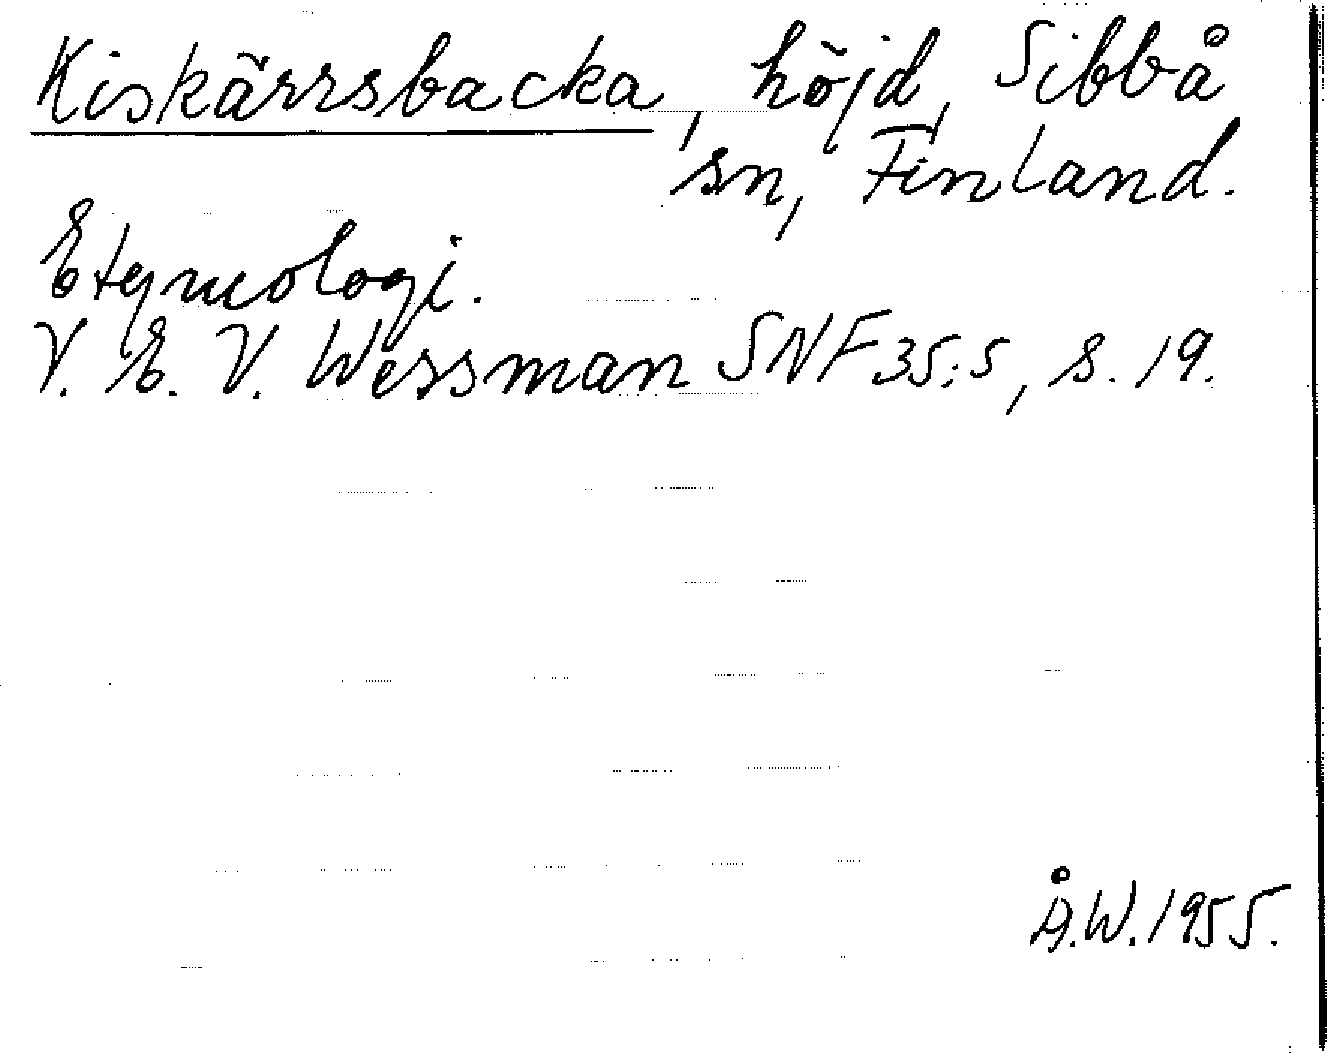 Kiskärrsbacka, höjd, Sibbå
sn, Finland.
Etymologi.
V. E. V. Wessman SNF 35:5, s. 19.
Å.W. 1955.